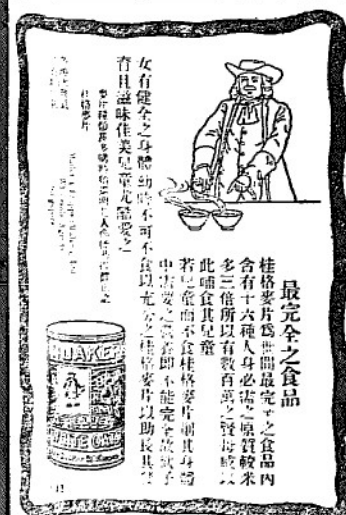 最完全之食品
桂格麥片爲世間最完全之食品內
含有十六種人身必需之原質較米
多三倍所以有數百萬之賢母咸以
此哺食其兒童
若兒童而不食桂格麥片則其身體
中需要之營養即不能完全故欲子
女有健全之身體幼時不可不食以充分之桂格麥片以助長其發
育且滋味佳美兒童尤酷愛之
桂格麥片
QUAKER
WHITE OATS